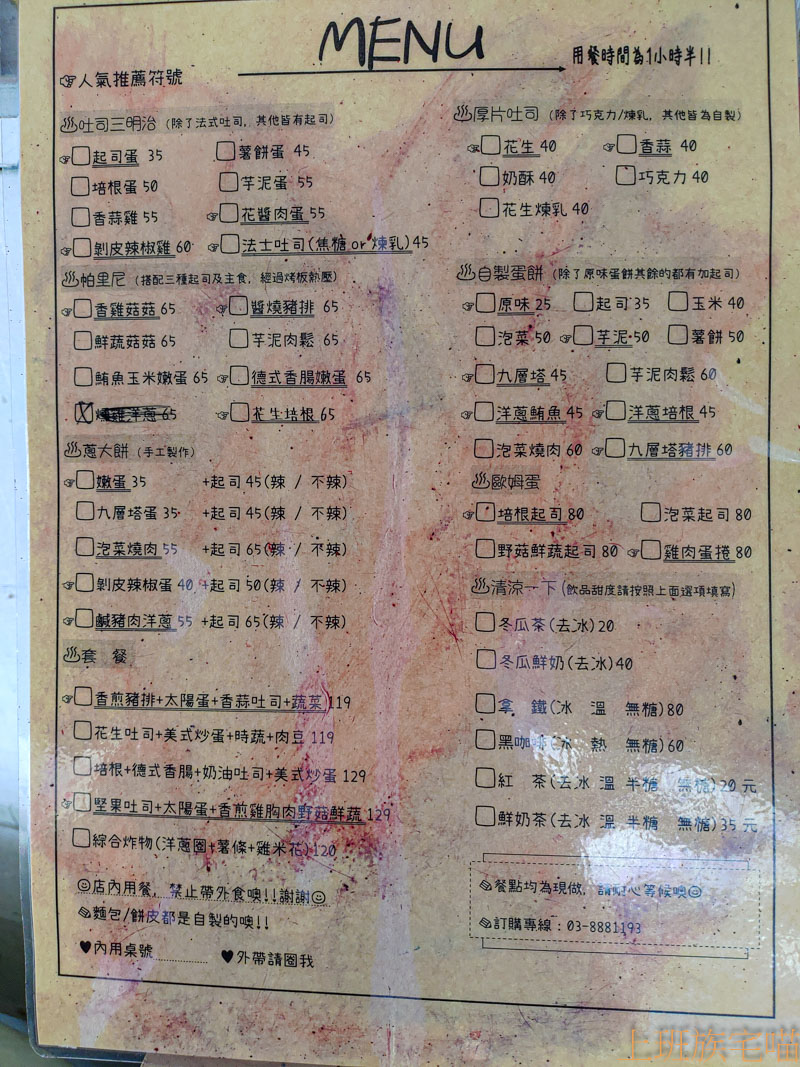 MENU
用餐時間為1小時半!!
☞人氣推薦符號
♨吐司三明治 (除了法式吐司，其他皆有起司)
☞□起司蛋 35 □薯餅蛋 45
□培根蛋 50 □芋泥蛋 55
□香蒜雞 55 ☞□花醬肉蛋 55
☞□剝皮辣椒雞 60 ☞□法士吐司(焦糖 or 煉乳)45
♨帕里尼 (搭配三種起司及主食，經過烤板熱壓)
☞□香雞菇菇 65 ☞□醬燒豬排 65
□鮮蔬菇菇 65 □芋泥肉鬆 65
□鮪魚玉米嫩蛋 65 ☞□德式香腸嫩蛋 65
☞□花生培根 65
♨蔥大餅 (手工製作)
☞□嫩蛋 35 +起司 45(辣 / 不辣)
□九層塔蛋 35 +起司 45(辣 / 不辣)
□泡菜燒肉 55 +起司 65(辣 / 不辣)
☞□剝皮辣椒蛋 40 +起司 50(辣 / 不辣)
☞□鹹豬肉洋蔥 55 +起司 65(辣 / 不辣)
♨套 餐
☞□香煎豬排+太陽蛋+香蒜吐司+蔬菜 119
□花生吐司+美式炒蛋+時蔬+肉豆 119
□培根+德式香腸+奶油吐司+美式炒蛋 129
☞□堅果吐司+太陽蛋+香煎雞胸肉野菇鮮蔬 129
□綜合炸物(洋蔥圈+薯條+雞米花)120
☺店內用餐，禁止帶外食噢!!謝謝☺
✎麵包/餅皮都是自製的噢!!
♥內用桌號 ♥外帶請圈我
♨厚片吐司 (除了巧克力/煉乳，其他皆為自製)
☞□花生 40 ☞□香蒜 40
□奶酥 40 □巧克力 40
□花生煉乳 40
♨自製蛋餅 (除了原味蛋餅其餘的都有加起司)
☞□原味 25 □起司 35 □玉米 40
□泡菜 50 ☞□芋泥 50 □薯餅 50
☞□九層塔 45 □芋泥肉鬆 60
☞□洋蔥鮪魚 45 ☞□洋蔥培根 45
□泡菜燒肉 60 ☞□九層塔豬排 60
♨歐姆蛋
☞□培根起司 80 □泡菜起司 80
□野菇鮮蔬起司 80 ☞□雞肉蛋捲 80
♨清涼一下 (飲品甜度請按照上面選項填寫)
□冬瓜茶(去冰)20
□冬瓜鮮奶(去冰)40
□拿 鐵(冰 溫 無糖)80
□黑咖啡(冰 熱 無糖)60
□紅 茶(去冰 溫 半糖 無糖)20 元
□鮮奶茶(去冰 溫 半糖 無糖)35 元
✎餐點均為現做，請耐心等候噢☺
✎訂購專線：03-8881193
上班族宅喵